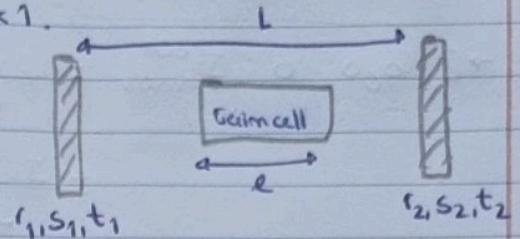 <1.
L
Gaincell
l
r₁,s₁,t₁
r₂,s₂,t₂